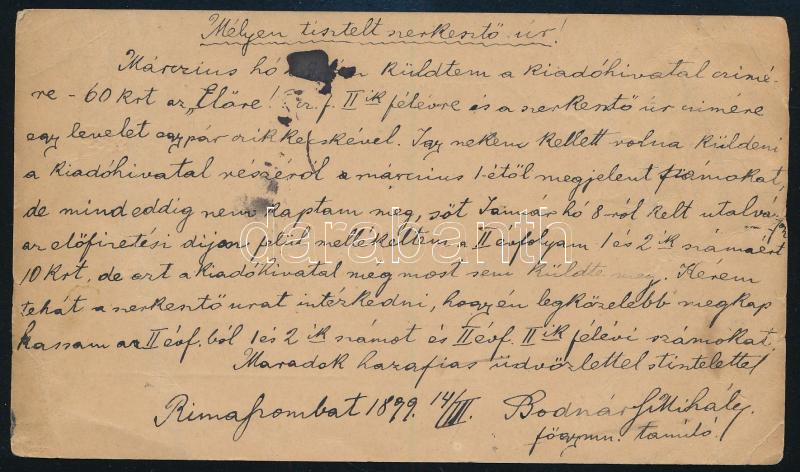 Mélyen tisztelt szerkesztő úr!
Márczius hó küldtem a kiadóhivatal czimé-
re - 60 krt az „Előre! II ik félévre és a szerkesztő úr czimére
egy levelet egy pár czikkecskével. Igy nekem kellett volna küldeni
a kiadóhivatal részéről a márczius 1-étől megjelent számokat,
de mind eddig nem kaptam meg, sőt Január hó 8-ról kelt utalvá-
az előfizetési dijon felül mellékeltem a II évfolyam 1 és 2 ik számáért
10 krt, de ezt a kiadóhivatal meg most sem küldte meg. Kérem
tehát a szerkesztő urat intézkedni, hogy én legközelebb megkap
hassam az II évf. ból 1 és 2 ik számot és II évf. II ik félévi számokat.
Maradok hazafias üdvözlettel stisztelettel
Rimaszombat 1899. 14/III. Bodnár Mihály
főgymn. tanuló.
darabanth